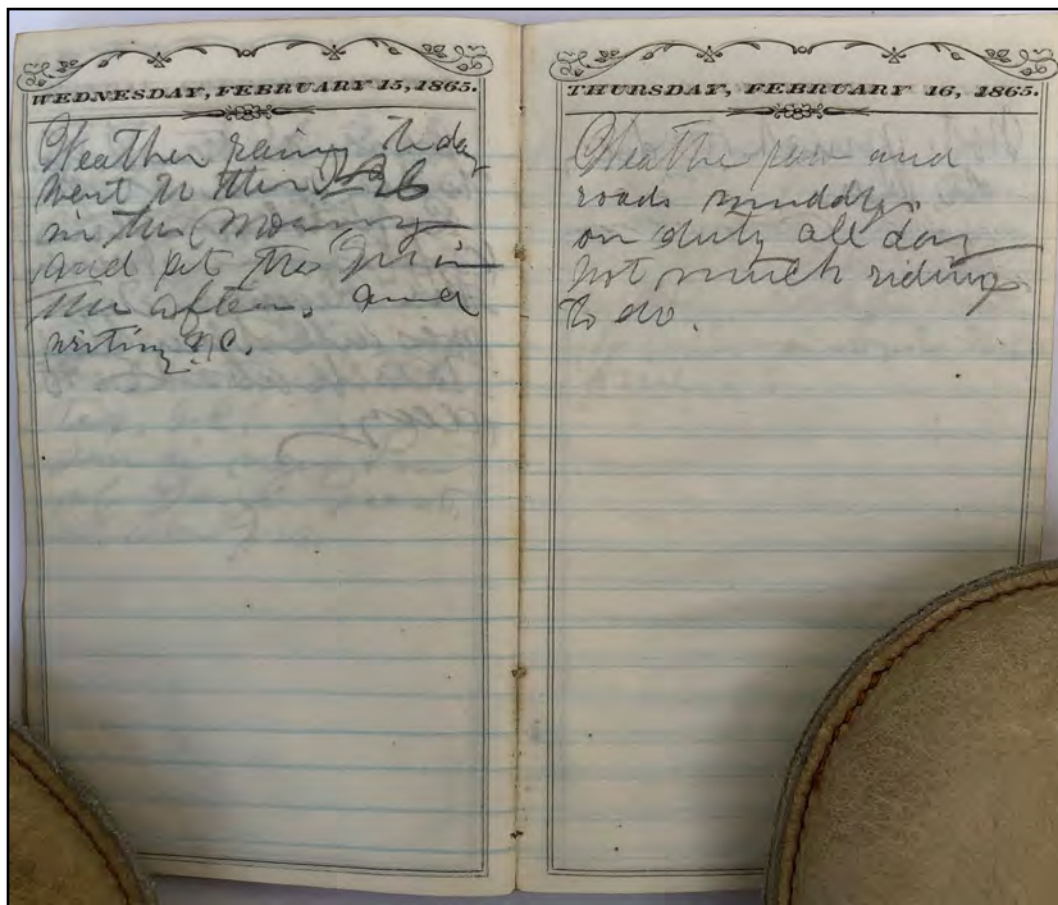 WEDNESDAY, FEBRUARY 15, 1865.
Weather rainy to day
went to the
in the Morning
and
the after. and
writing &c.
THURSDAY, FEBRUARY 16, 1865.
Weathe rain and
roads muddy.
on duty all day
not much riding
to do.